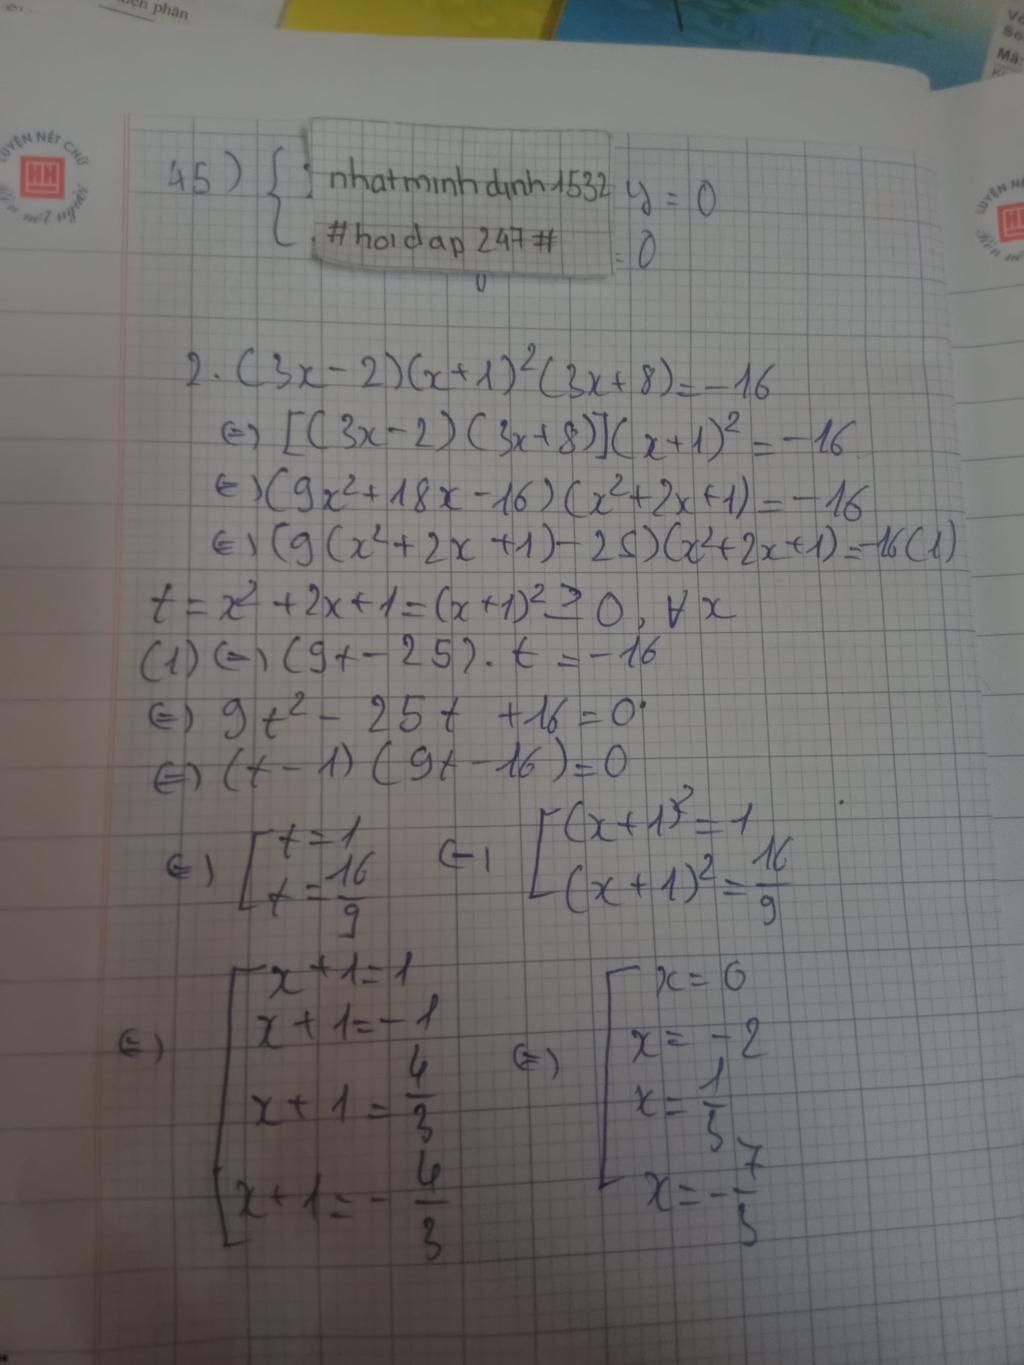 iện phân
LUYỆN NÉT CHỮ
HH
Rèn nết người
45) { y = 0
= 0
nhatminhdinh1532
#hoidap247#
2. (3x-2)(x+1)²(3x+8)=-16
⇔ [(3x-2)(3x+8)](x+1)²=-16
⇔ (9x²+18x-16)(x²+2x+1)=-16
⇔ (9(x²+2x+1)-25)(x²+2x+1)=-16(1)
t=x²+2x+1=(x+1)²≥0, ∀x
(1) ⇔ (9t-25).t=-16
⇔ 9t²-25t+16=0
⇔ (t-1)(9t-16)=0
⇔ [ t=1 ⇔ [ (x+1)²=1
t=16/9 (x+1)²=16/9
⇔ [ x+1=1 ⇔ [ x=0
x+1=-1 x=-2
x+1=4/3 x=1/3
x+1=-4/3 x=-7/3